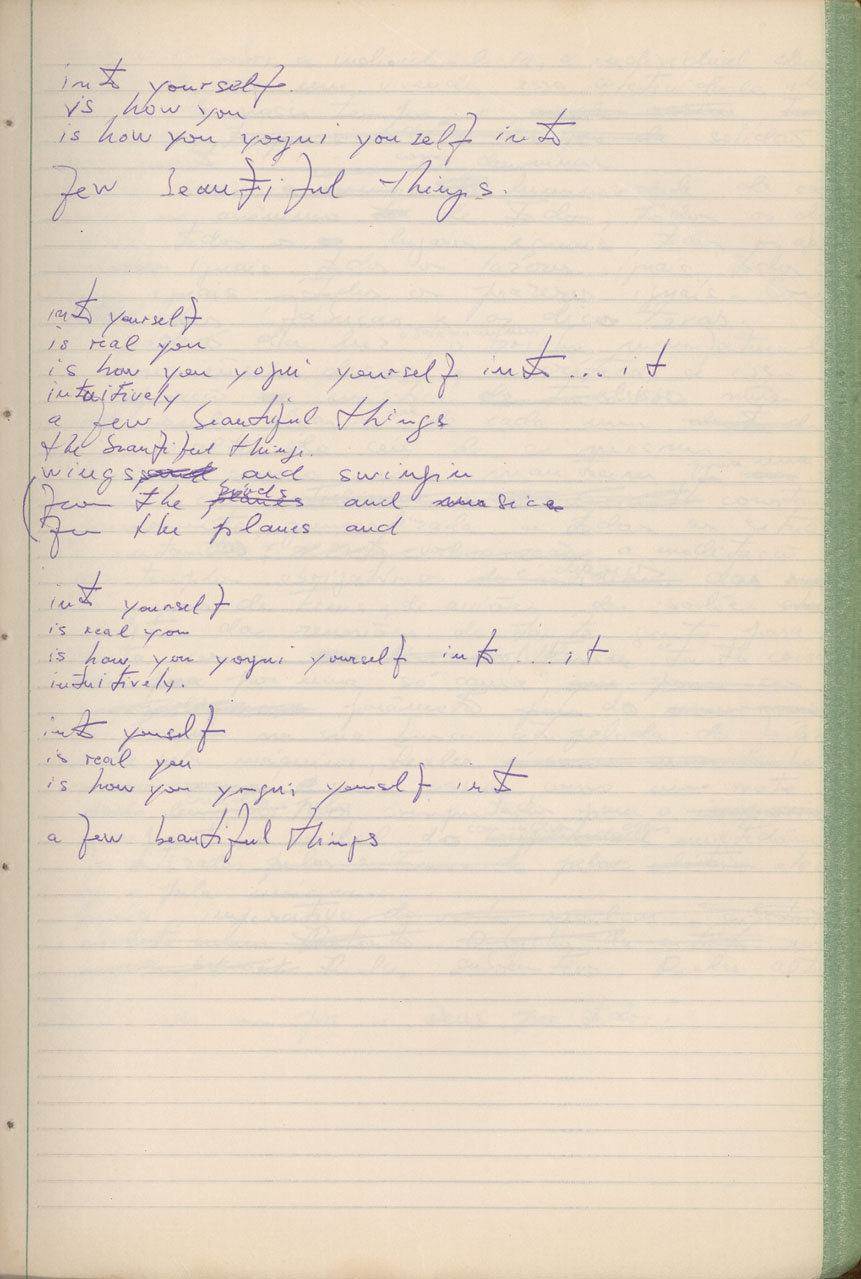 into yourself.
is how you
is how you yogui youself into
few beautiful things.
into yourself
is real you
is how you yogui yourself into ... it
intuitively
a few beautiful things
the beautiful things.
wings and and swingin
birds
from the planes and music
from the planes and
into yourself
is real you
is how you yogui yourself into ... it
intuitively.
into youself
is real you
is how you yogui yourself into
a few beautiful things